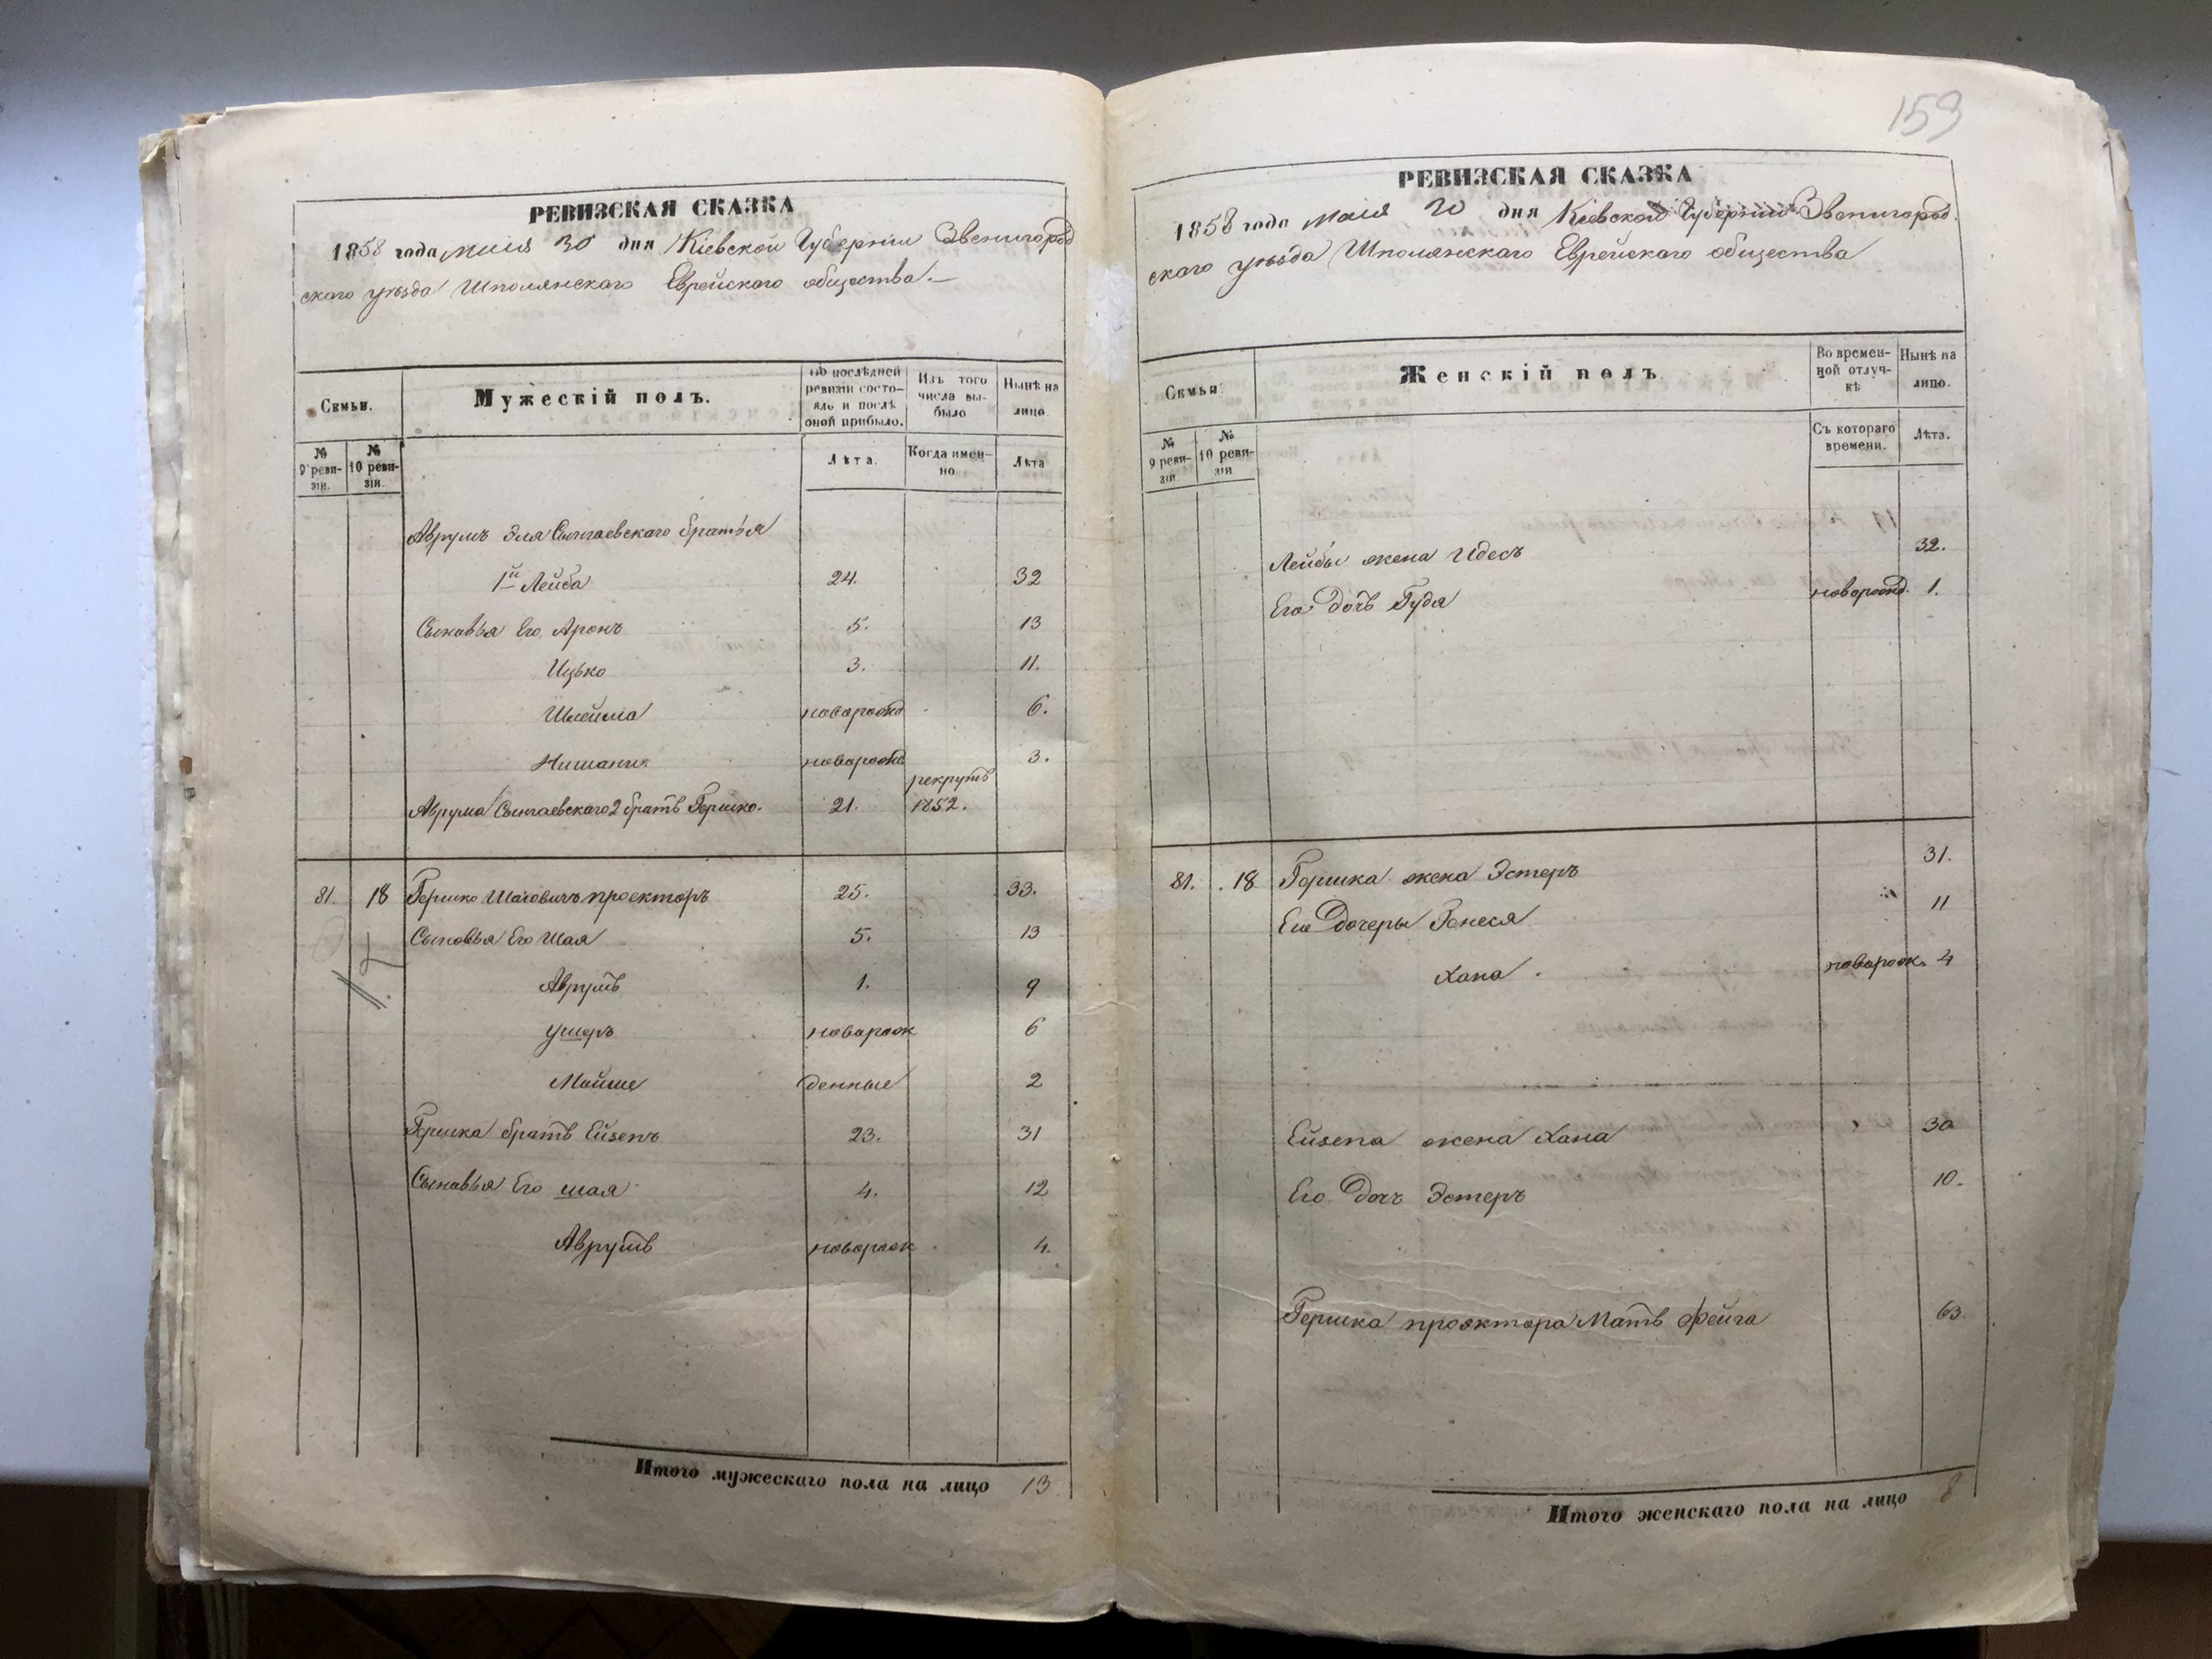 159
РЕВИЗСКАЯ СКАЗКА
1858 года маія 30 дня Кіевской Губерніи Звенигород
скаго уѣзда Шполянскаго Еврейскаго общества.—
Семьи.
Мужескій полъ.
По послѣдней ревизіи состояло и послѣ оной прибыло.
Изъ того числа выбыло
Нынѣ на лицо
№ 9 ревизіи.
№ 10 ревизіи.
Лѣта.
Когда именно
Лѣта
Аврумъ Эля братья
1й Лейба 24. 32
Сыновья Его Аронъ 5. 13
Ицько 3. 11.
Шлейма новорожд 6.
новорожд 3.
рекрутъ
Аврума 2 братъ Гершко. 21. 1852.
81. 18 Гершко Шаговичъ проекторъ 25. 33.
Сыновья Его Шая 5. 13
Аврумъ 1. 9
Ушеръ новорож 6
Мойше денные 2
Гершка братъ Ейзенъ 23. 31
Сыновья Его Шая 4. 12
Аврумъ новорож 4.
Итого мужескаго пола на лицо 13
РЕВИЗСКАЯ СКАЗКА
1858 года маія 30 дня Кіевской Губерніи Звенигород.
скаго уѣзда Шполянскаго Еврейскаго общества
Семьи.
Женскій полъ.
Во временной отлучкѣ
Нынѣ на лицо.
№ 9 ревизіи
№ 10 ревизіи
Съ котораго времени.
Лѣта.
Лейбы жена Идесъ 32.
Его дочь Гудя новорожд. 1.
81. 18 Гершка жена Эстеръ 31.
Его Дочеры Генеся 11
Хана новорож. 4
Ейзена жена Хана 30
Его Дочь Эстеръ 10.
Гершка проэктора Мать Фейга 63
Итого женскаго пола на лицо 8